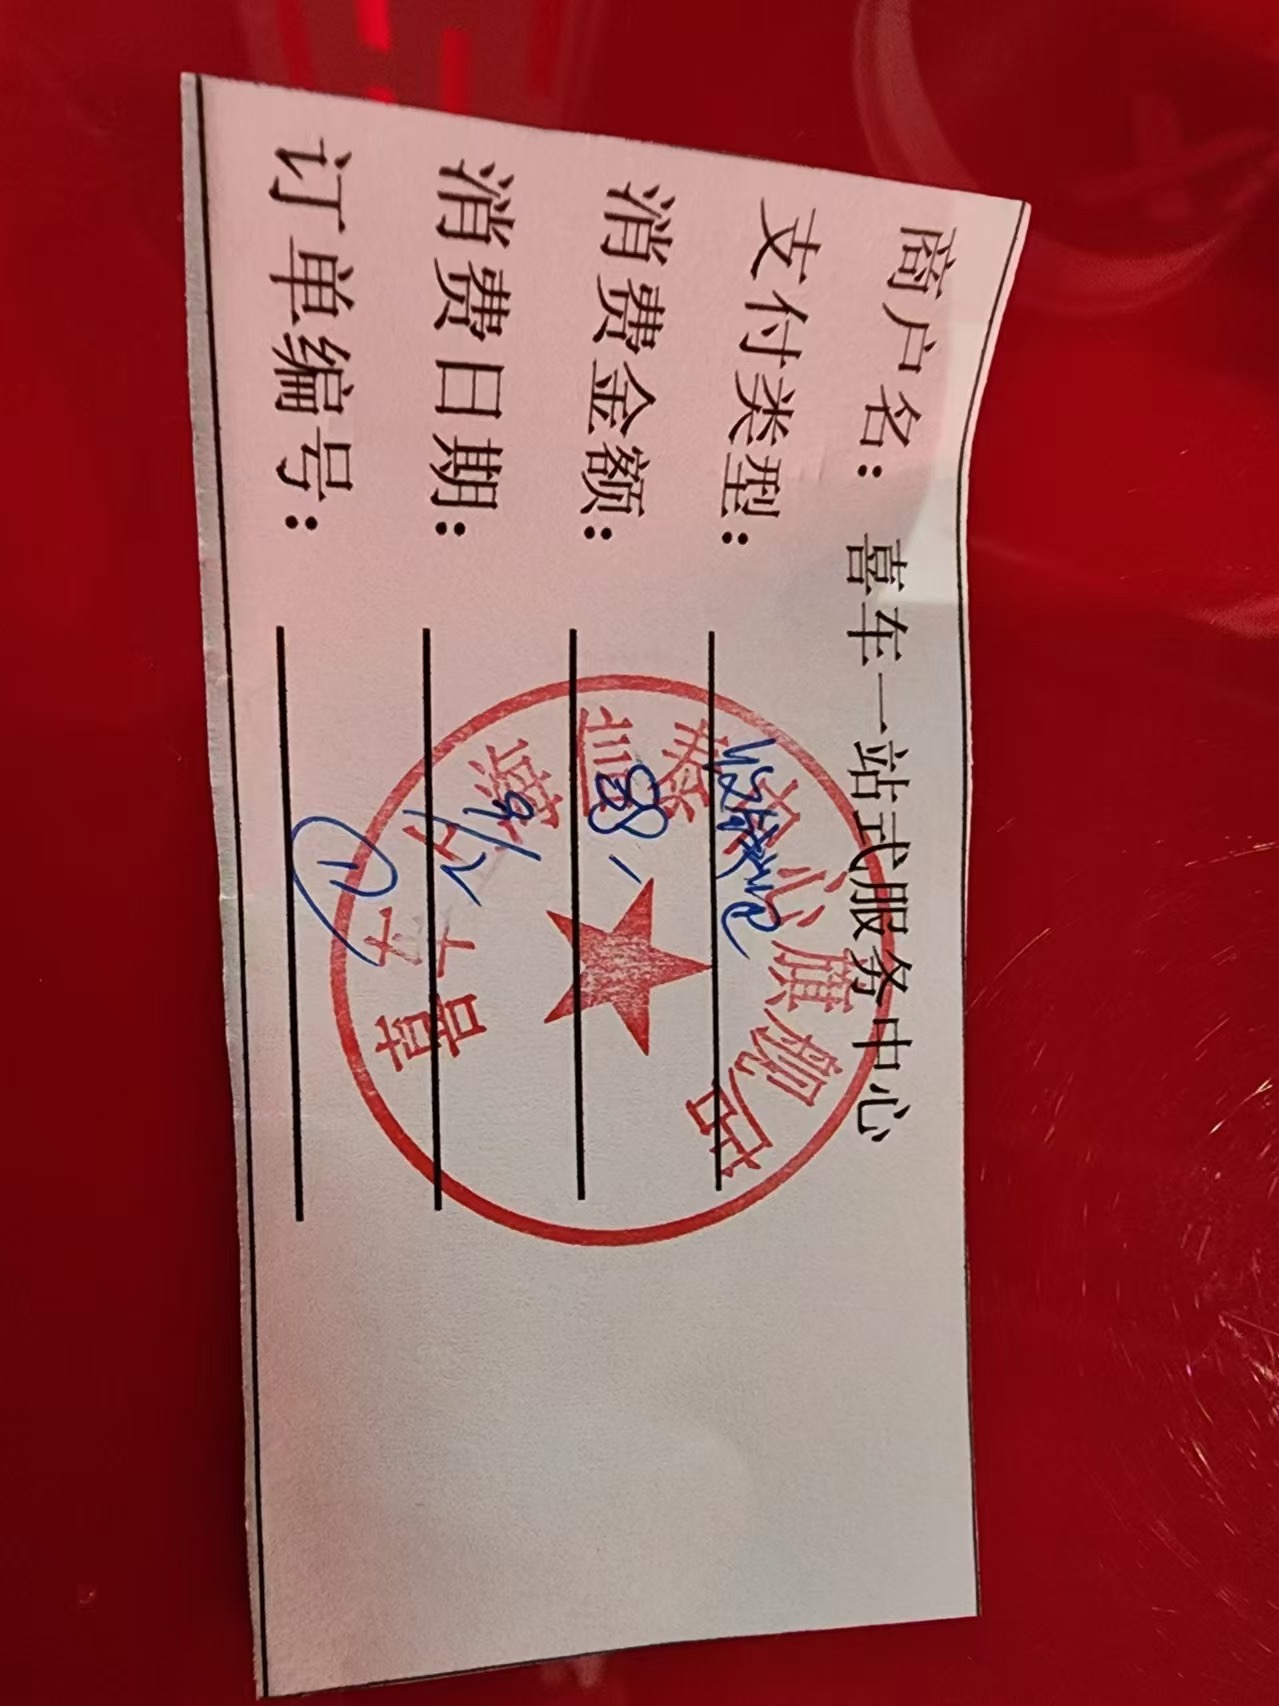 商户名：喜车一站式服务中心
支付类型：
消费金额：88
消费日期：9/2
订单编号：①
心旗舰店